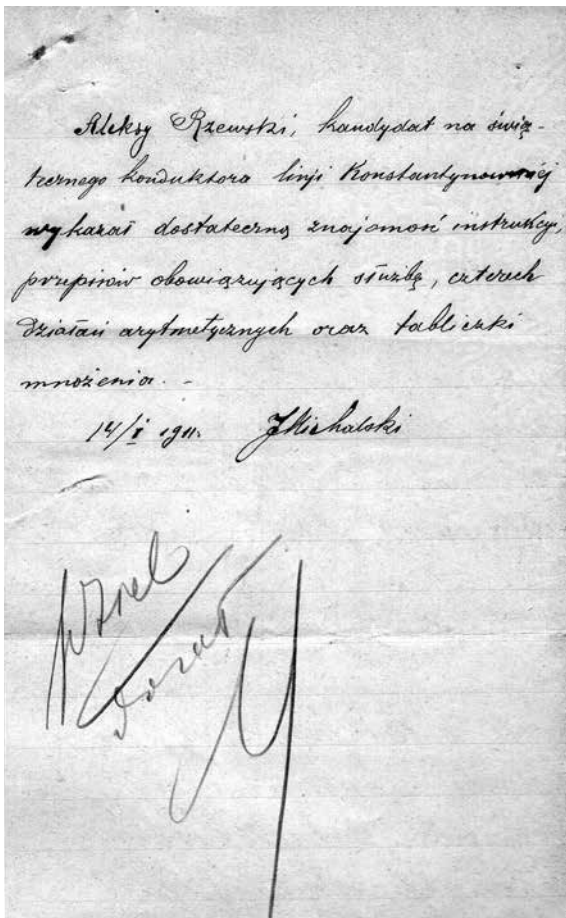 Aleksy Rzewski, kandydat na świą-
tecznego konduktora linji Konstantynowskiej
wykazał dostateczną znajomość instrukcyi,
przepisów obowiązujących służbę, czterech
działań arytmetycznych oraz tabliczki
mnożenia. -
14/I 1911. J Michalski